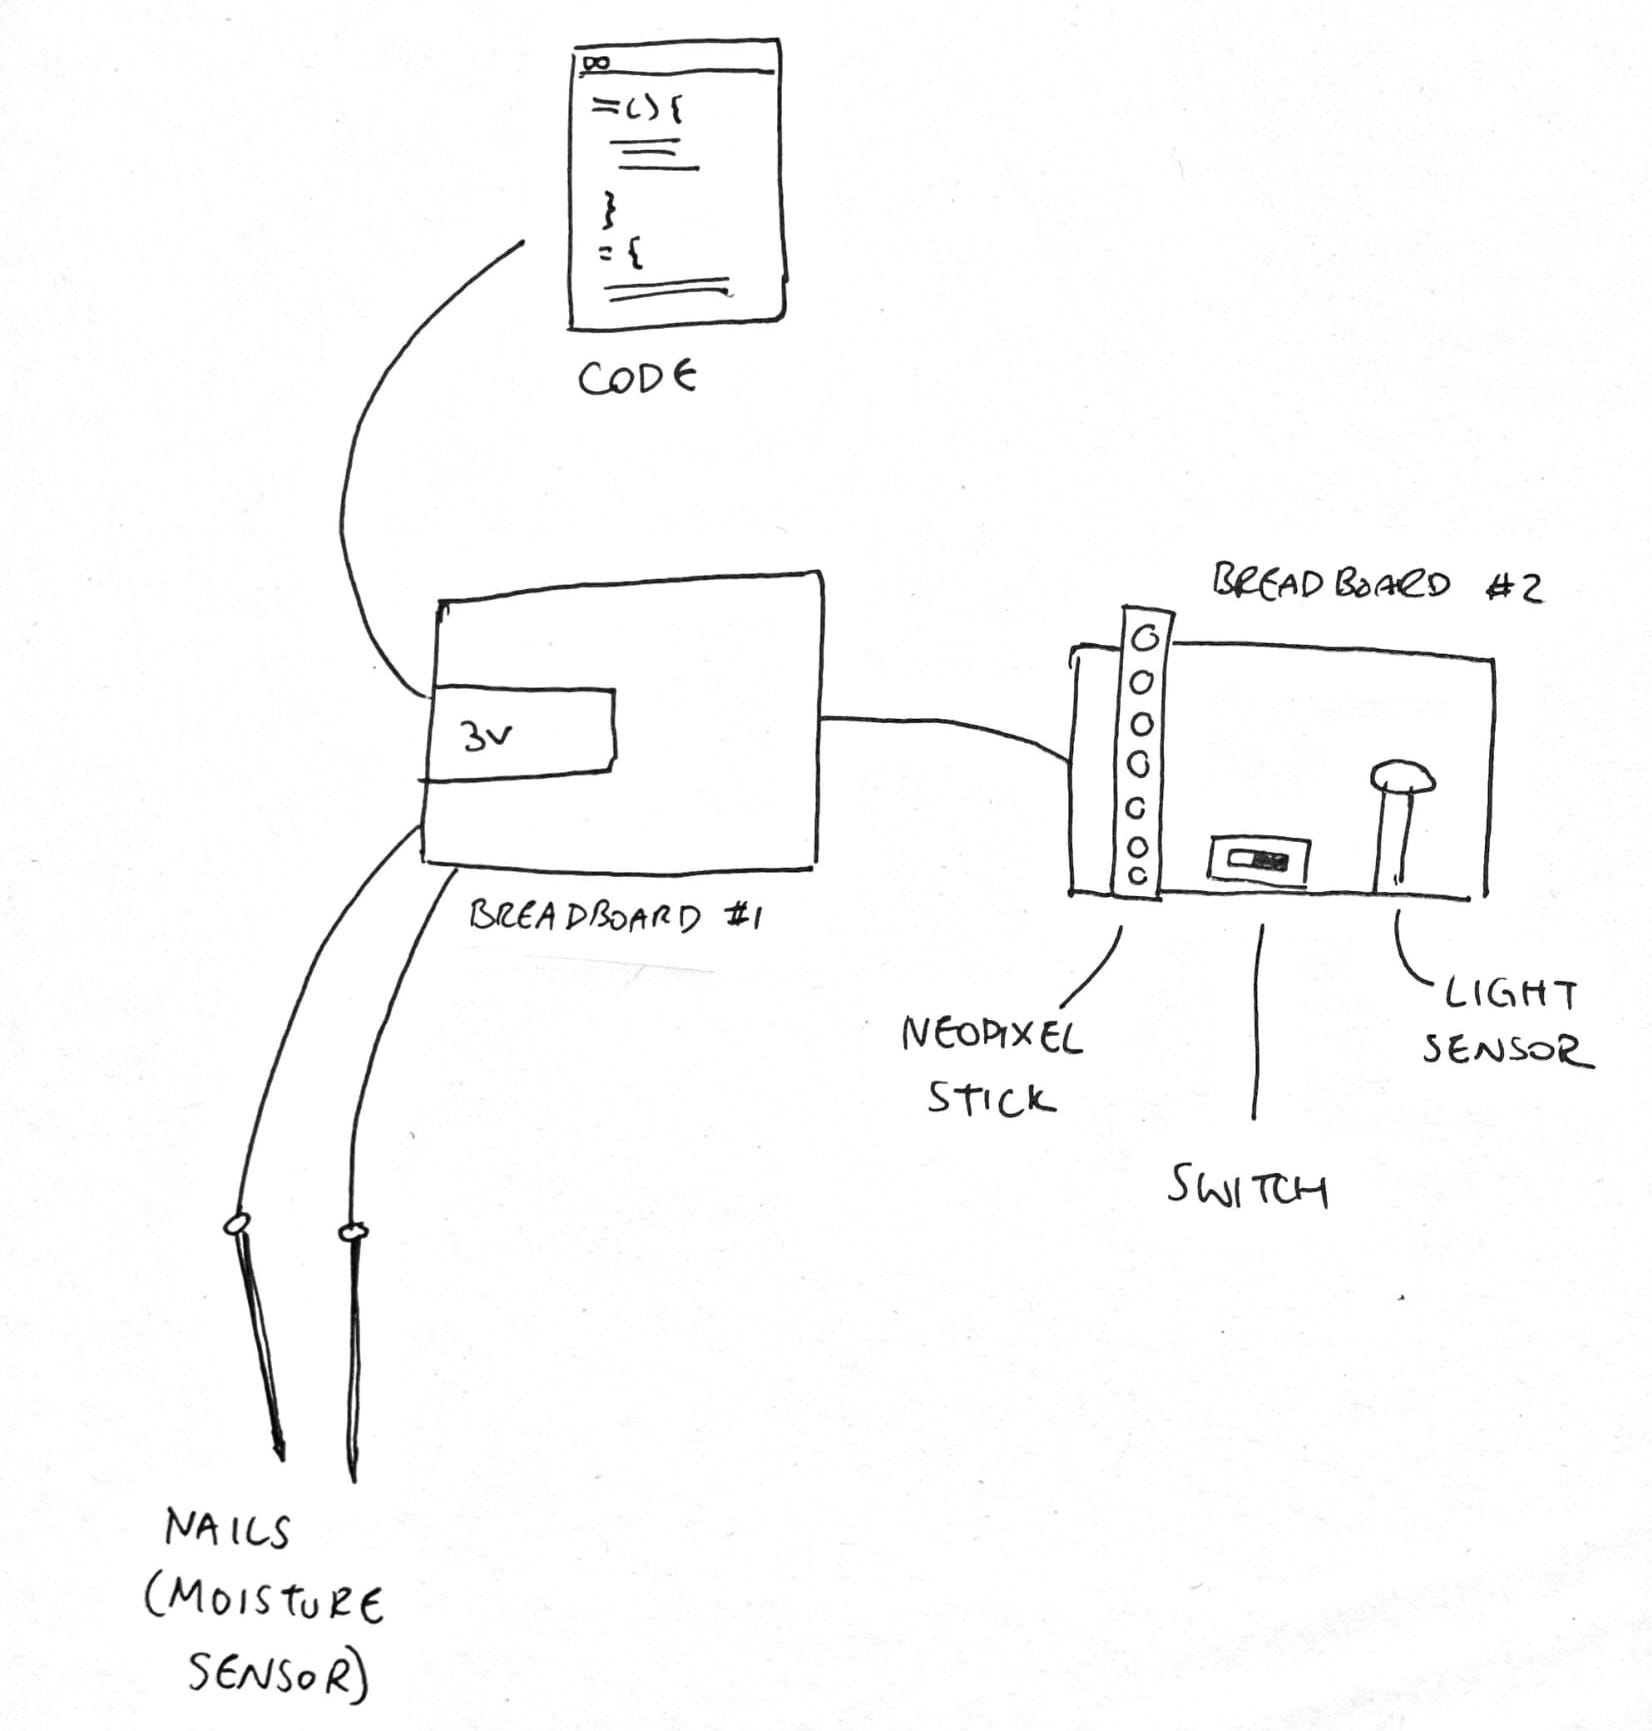 =() {
}
= {
CODE
3V
BREADBOARD #1
BREADBOARD #2
NEOPIXEL
STICK
SWITCH
LIGHT
SENSOR
NAILS
(MOISTURE
SENSOR)